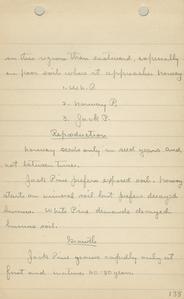 in this region than eastward, especially
on poor soil where it approaches Norway
1. Wh. P.
2. Norway P.
3. Jack P.
Reproduction
Norway seeds only in seed years and
not between times.
Jack Pine prefers exposed soil. Norway
starts on mineral soil but prefers decayed
humus. White Pine demands decayed
humus soil.
Growth
Jack Pine grows rapidly only at
first and matures 60-80 years.
138